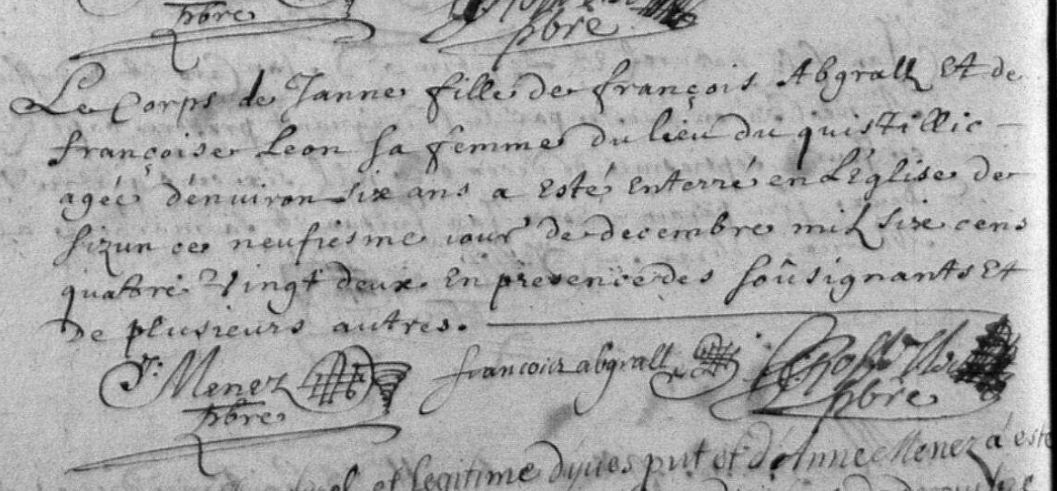 pbre pbre
Le Corps de Janne fille de françois Abgrall Et de
françoise Leon sa femme du lieu du quistillic
agée d'environ six ans a esté enterré en L'église de
sizun ce neufiesme iour de decembre mil sixe cens
quattre Vingt deux En presence des soûsignants Et
de plusieurs autres.
Y: Menez françois abgrall
pbre pbre
et legitime d'yues put et d'Anne Menez a esté